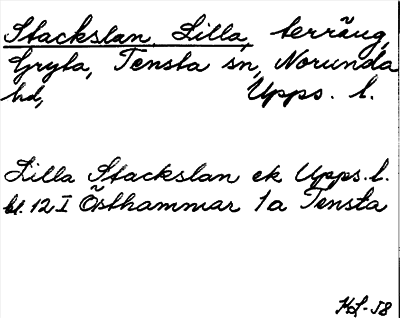 Stackslan, Lilla, terräng,
Gryta, Tensta sn, Norunda
hd, Upps. l.
Lilla Stackslan ek Upps. l.
bl. 12 I Östhammar 1a Tensta
KL-58